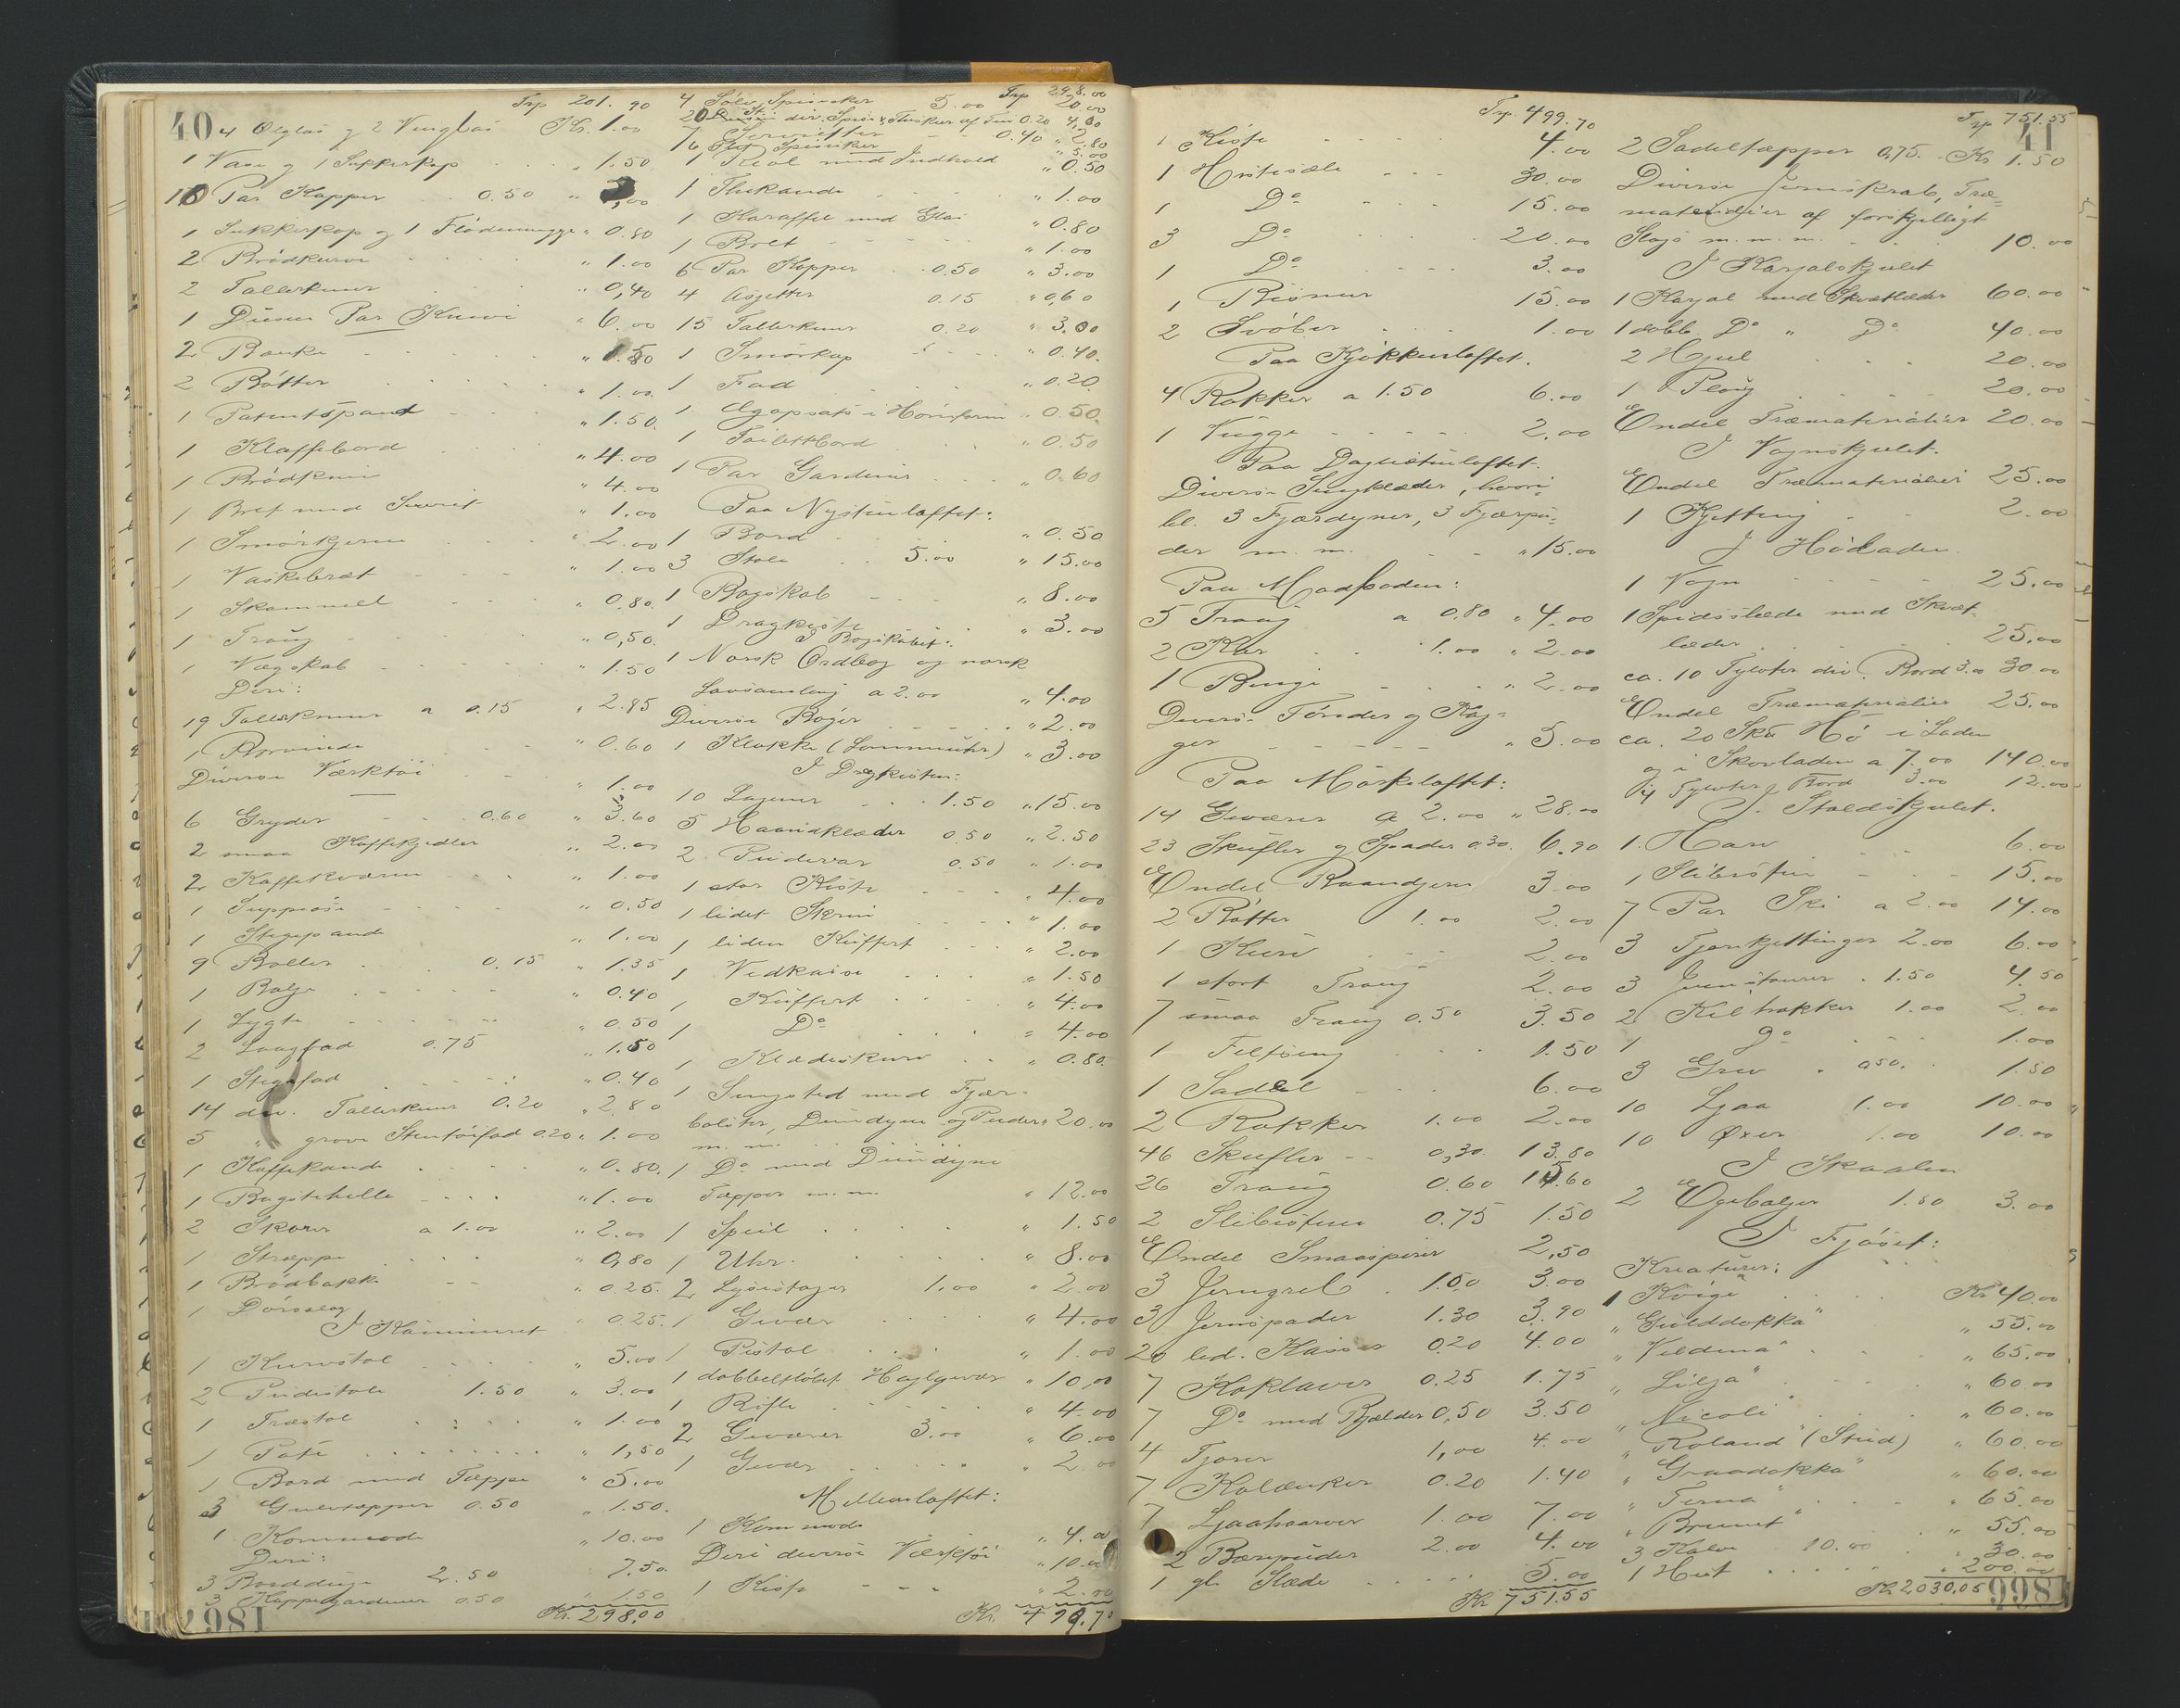 40
Trp 201.90
4 Ølglas og 2 Vinglas Kr. 1.00
1 Vase og 1 Sukkerkop " 1.50
10 Par Kopper 0.50 " 5,00
1 Sukkerkop og 1 Flødemugge " 0.80
2 Brödkurve " 1.00
2 Tallerkener " 0,40
1 Dusin Par Knive " 6.00
2 Bænke
2 Bøtter " 1.00
1 Patentspand " 1.50.
1 Klaffebord " 4.00
1 Brödkniv " 4.00
1 Bret med Servit " 1.00
1 Smørkjerne " 2.00
1 Vaskebræt " 1.00
1 Skammel " 0.80.
1 Traug " 0,50.
1 Vægskab 1.50
Deri:
19 Tallerkener a 0.15 " 2.85
1 " 0.60
Diverse Værktøi " 1.00
6 Gryder 0.60 " 3.60
2 smaa Kaffekjedler " 2.00
2 Kaffekværne " 1.00
1 Suppeøse " 0.50
1 Stegepande " 1.00
9 Boller 0.15 " 1.35
1 Balje " 0.40
1 Lygte " 0.50
2 Laagfad 0.75 " 1.50
1 Stegefad " 0.40
14 div. Tallerkener 0.20 " 2.80
5 " grove Stentöifad 0.20 " 1.00
1 Kaffekande " 0.80.
1 Bagstehelle " 1.00
2 Skorer a 1.00 " 2.00
1 Strøppe " 0,80
1 Brödbakke " 0.25.
1 Dørslag " 0.25.
I Kammeret
1 Kurvstol " 5.00
2 Pindestole 1.50 " 3.00
1 Træstol " 1.00
1 " 1,50
1 Bord med Tæppe " 5.00
3 Gulvtæpper 0.50 " 1.50.
1 Kommode " 10.00
Deri:
3 Bordduge 2.50 7.50
3 Kappegardiner 0.50 1.50
Kr. 298,00
Trp 298.00
4 Sølv Spiseskeer 5.00 20.00
20 St. div. Spise & Theskeer af Tin 0.20 4,00
7 Servietter 0.40 " 2.80
16 Spiseskeer " 5.00
1 Reol med Indhold " 0.50
1 Thekande " 1.00
1 Karaffel med Glas " 0.80
1 Bret " 1.00
6 Par Kopper 0.50 " 3.00
4 Asjetter 0.15 " 0,60
15 Tallerkener 0.20 " 3.00
1 Smørkop " 0.40.
1 Fad " 0.20
1 Ægopsats i Hønseform " 0.50
1 Toiletbord " 0.50
1 Par Gardiner " 0.60
Paa Nystueloftet:
1 Bord " 0.50
3 Stole 5.00 " 15.00
1 Bogskab " 8.00
1 Dragkiste " 3.00
I Bogskabet:
1 Norsk Ordbog og norsk
Lovsamling a 2.00 " 4.00
Diverse Bøger " 2.00
1 Klokke (Lommeuhr) " 3.00
I Dragkisten:
10 Lagener 1.50 " 15.00
5 Haandklæder 0.50 " 2.50
2 Pudevar 0.50 " 1.00
1 stor Kiste " 4.00
1 lidet Skrin " 1.00
1 liden Kuffert " 2.00
1 Vedkasse " 1.50
1 Kuffert " 4.00
1 Do " 4.00
1 Klædeskurv " 0.80.
1 Sengsted med Fjær-
bolster, Dundyne og Puder " 20.00
m. m.
1 Do med Dundyne
Tæpper m.m. " 12.00
1 Speil " 1.50
1 Uhr. " 8.00
2 Lysestager 1,00 " 2.00
1 Gevær " 4.00
1 Pistol " 1.00
1 dobbeltløbet Haglgevær " 10,00
1 Rifle " 4.00
2 Geværer 3.00 " 6.00
1 Gevær " 2.00
Mellemloftet:
1 Kommode " 4.00
Deri diverse Værktöi " 10.00
1 Kiste " 2.00
Kr. 499.70
Trp. 499.70
1 Kiste 4.00
1 Hestesæle 30.00
1 Do 15.00
3 Do 20.00
1 Do 3.00
1 Bismer 15.00
2 Svøber 1.00
Paa Kjøkkenloftet.
4 Rokker a 1.50 6.00
1 Vugge 2.00
Paa Daglistueloftet.
Diverse Sengklæder, hvori-
bl. 3 Fjærdyner, 3 Fjærpu-
der m. m. " 15.00
Paa Madboden:
5 Traug a 0.80 " 4.00
2 Kar 1.00 " 2.00
1 Binge " 2.00
Diverse Tønder og Kag-
ger " 5.00
Paa Mørkeloftet:
14 Geværer a 2.00 " 28.00
23 Skufler og Spader 0.30. 6.90
Endel Baandjern 3.00
2 Bøtter 1.00 2.00
1 Kurv 2.00
1 stort Traug 2.00
7 smaa Traug 0.50 3.50
1 Feltseng 1.50
1 Sadel 6.00
2 Rokker 1.00 2.00
46 Skufler 0,30. 13.80
26 Traug 0.60 15.60
2 Slibestene 0.75 1.50
Endel Smaaspiger 2.50
3 Jerngreb 1.00 3.00
3 Jernspader 1.30 3.90
20 led. Kasser 0.20 4.00
7 Koklaver 0.25 1.75
7 Do med Bjælder 0,50 3.50
4 Tjorer 1,00 4.00
7 Kolænker 0.20 1.40
7 Ljaahaarver 1.00 7.00
2 Bærepuder 2.00 4.00
1 gl. Slæde 5.00
Kr 751.55
Trp 751.55
41
2 Sadeltæpper 0,75. Kr 1.50
Diverse Jernskrab, Træ-
materialier af forskjelligt
Slags m. m. m. 10.00
I Karjolskjulet
1 Karjol med Skvætlæder 60.00
1 dobb. Do " Do 40.00
2 Hjul 20.00
1 Ploug 20.00
Endel Træmaterialier 20.00
I Vognskjulet.
Endel Træmaterialier 25.00
1 Kjetting 2.00
I Høladen
1 Vogn 25.00
1 Spidsslæde med Skvæt-
læder 25.00
ca. 10 Tylvter div. Bord 3.00 30.00
Endel Træmaterialier 25.00
ca. 20 Skv Hø i Laden
og i Skovladen a 7.00 140.00
4 Tylvter Bord 3.00 12.00
I Staldskjulet.
1 Harv 6.00
1 Slibesten 15.00
7 Par Ski a 2.00 14.00
3 Tjorkjettinger 2.00 6.00
3 Jernstaurer 1.50 4.50
2 Kilhakker 1.00 2.00
1 Do 1.00
3 Grev 0.50. 1.50
10 Ljaa 1.00 10.00
10 Øxer 1.00 10.00
I Skaalen
2 Egebaljer 1.50 3.00
I Fjøset:
Kreaturer:
1 Kvige Kr 40.00
" Gulddokka" " 55.00
" Veldina" " 65.00
" Lilja" " 60.00
" Nicoli" " 60.00
" Roland" (Stud) " 60.00
" Graadokka" " 60.00
" Terna" " 65.00
" Brunet" " 55.00
3 Kalve 10.00 " 30.00
1 Hest " 200.00
Kr 2030,05